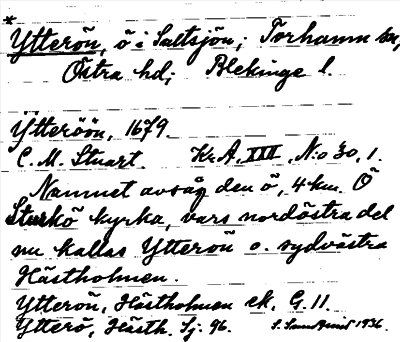 *
Ytterön, ö i Saltsjön; Torhamn sn,
Östra hd; Blekinge l.
Ytteröön, 1679.
C. M. Stuart. Kr.A. XIII, N:o 30, 1.
Namnet avsåg den ö, 4 km. Ö
Sturkö kyrka, vars nordöstra del
nu kallas Ytterön o. sydvästra
Hästholmen.
Ytterön, Hästholmen ek. G. 11.
Ytterö, Hästh. Sj. 96. 1936.